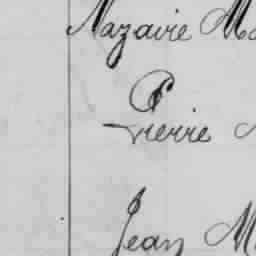 Nazaire
Pierre
Jean